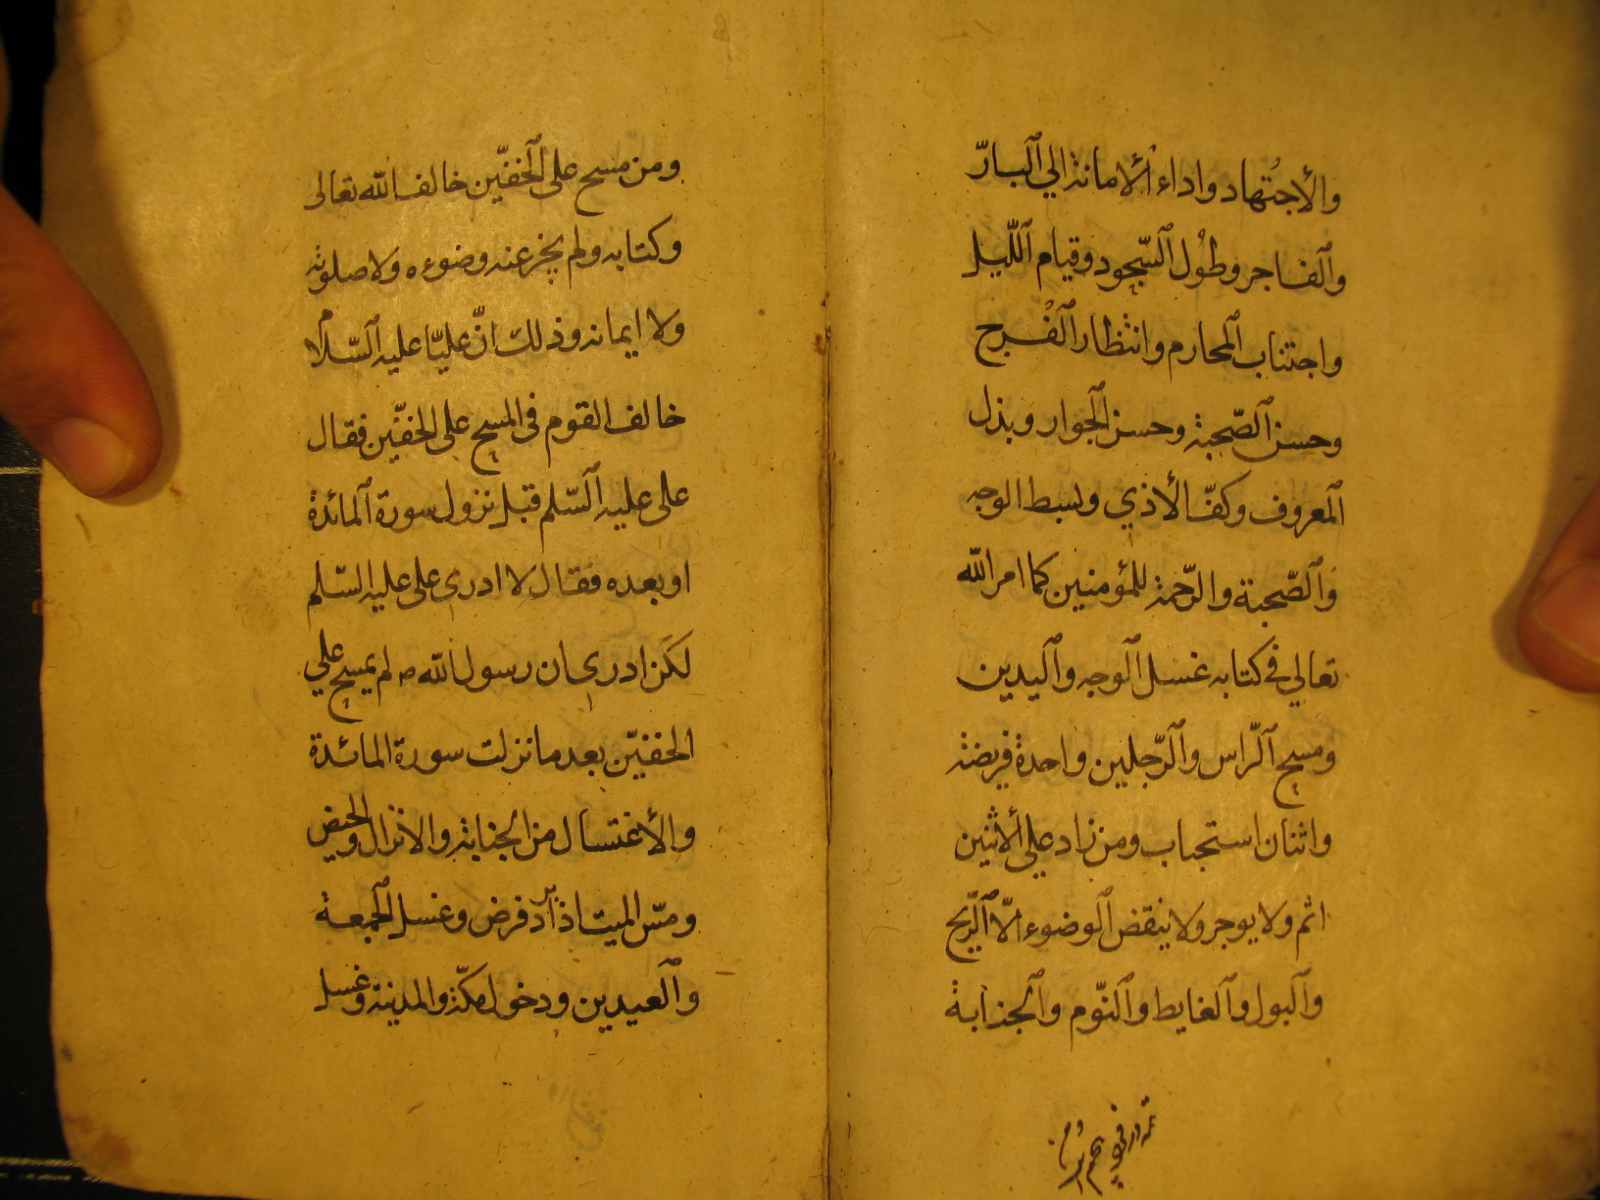 والأجتهاد واداء الأمانة الي البارّ
والفاجر وطول السّجود وقيام اللّيل
واجتناب المحارم وانتظار الفرج
وحسن الصّحبة وحسن الجوار وبذل
المعروف وكفّ الأذي وبسط الوجه
والصّحبة والرّحمة للمؤمنين كما امر الله
تعالي في كتابه غسل الوجه واليدين
ومسح الرّاس والرّجلين واحدة فريضة
واثنان استحباب ومن زاد علي الأثنين
اثم ولا يوجر ولا ينقض الوضوء الّا الرّيح
والبول والغايط والنّوم والجنابة
ومن مسح على الخفّين خالف الله تعالى
وكتابه ولم يجز عنه وضوءه ولا صلوته
ولا ايمانه وذلك انّ عليّا عليه السّلام
خالف القوم فى المسح على الخفّين فقال
على عليه السّلم قبل نزول سورة المائدة
او بعده فقال لا ادرى على عليه السّلم
لكن ادرى ان رسول الله ص لم يمسح علي
الخفّين بعد ما نزلت سورة المائدة
والأغتسال من الجنابة والانزال والحيض
ومسّ الميت اذا برد فرض وغسل الجمعة
والعيدين ودخول مكّة والمدينة وغسل